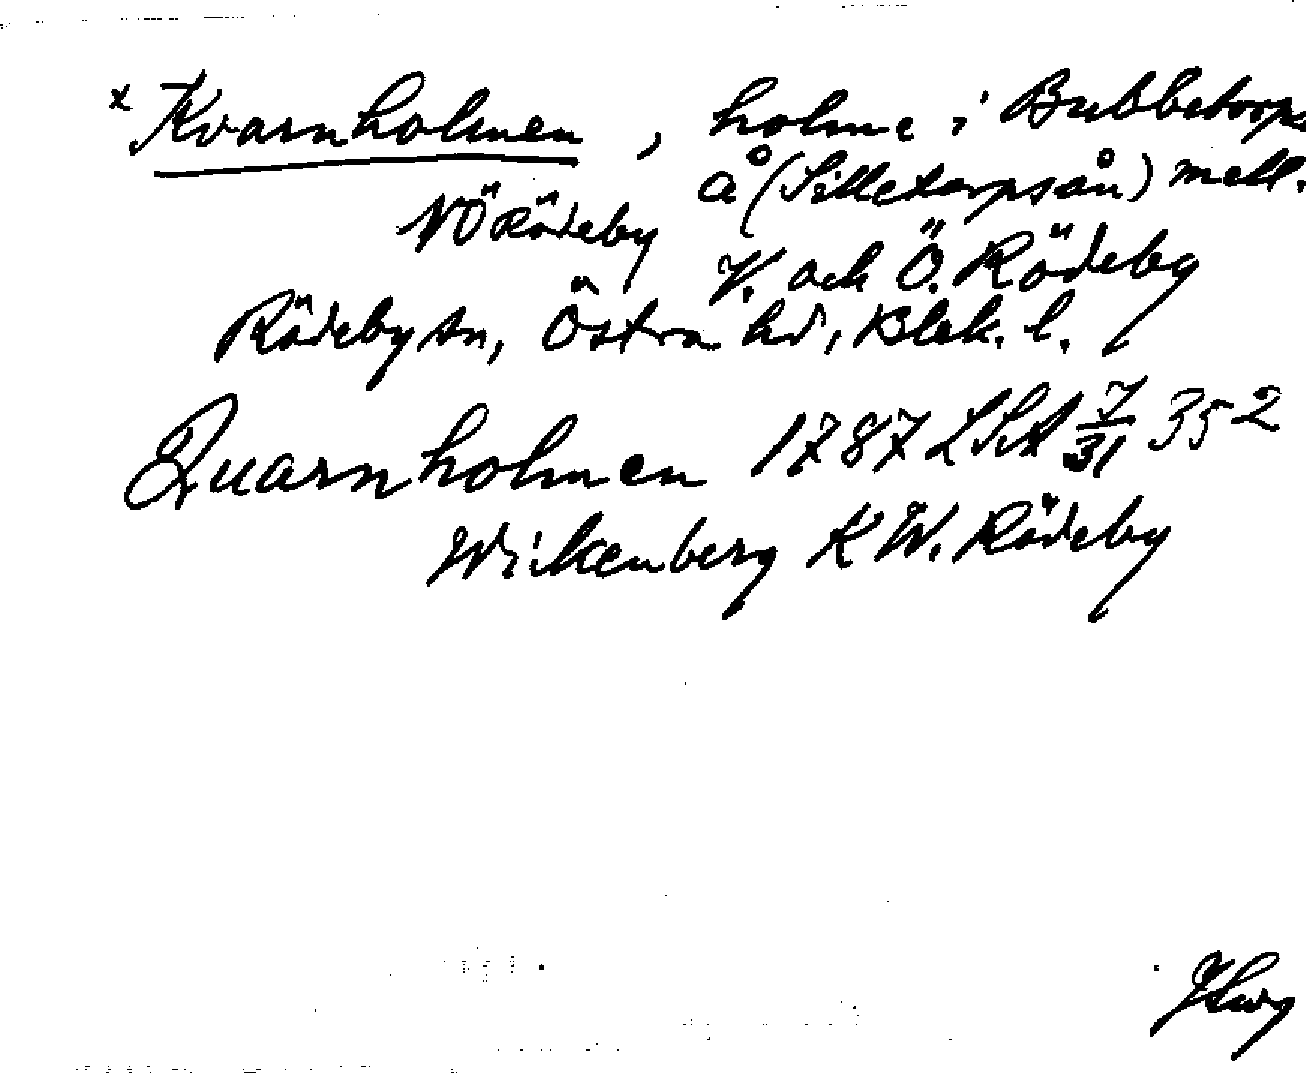 x Kvarnholmen, holme i Bubbetorps
å (Silletorpsån) mell.
NÖ Rödeby
V. och Ö. Rödeby
Rödeby sn, Östra hd, Blek. l.
Quarnholmen 1787 LSA 7/31 352
Wickenberg K W. Rödeby